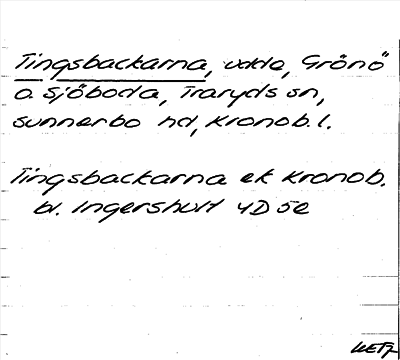 Tingsbackarna, udde, Grönö
o. Sjöboda, Traryds sn,
Sunnerbo hd, Kronob. l.
Tingsbackarna ek Kronob.
bl. Ingershult 4D 5e